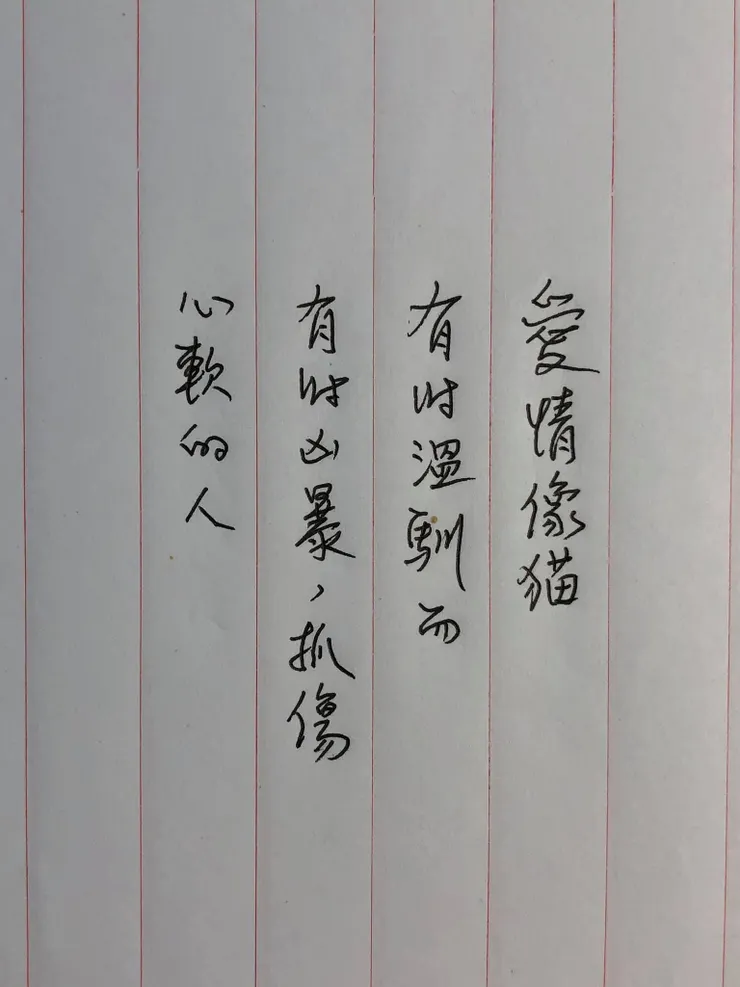 愛情像猫
有时溫馴而
有时凶暴，抓傷
心軟的人